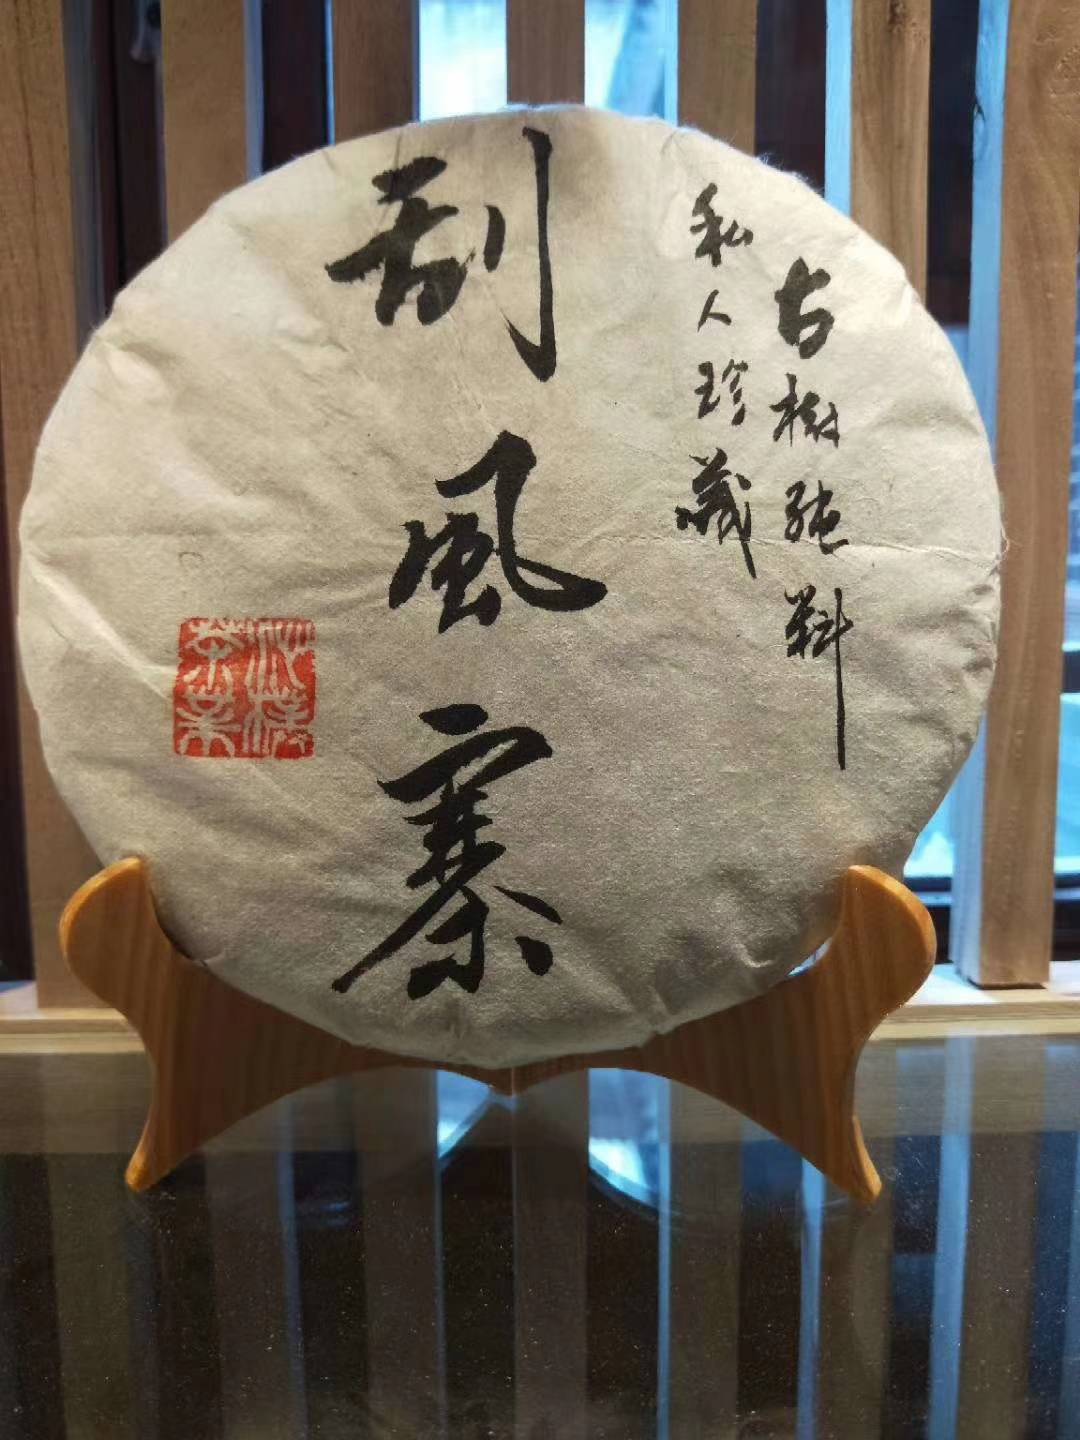 古樹純料
私人珍藏
刮風寨
茶業